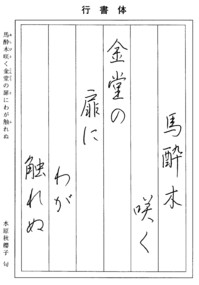 行書体
馬酔木
咲く
金堂の
扉に
わが
触れぬ
馬酔木咲く金堂の扉にわが触れぬ
水原秋櫻子 句